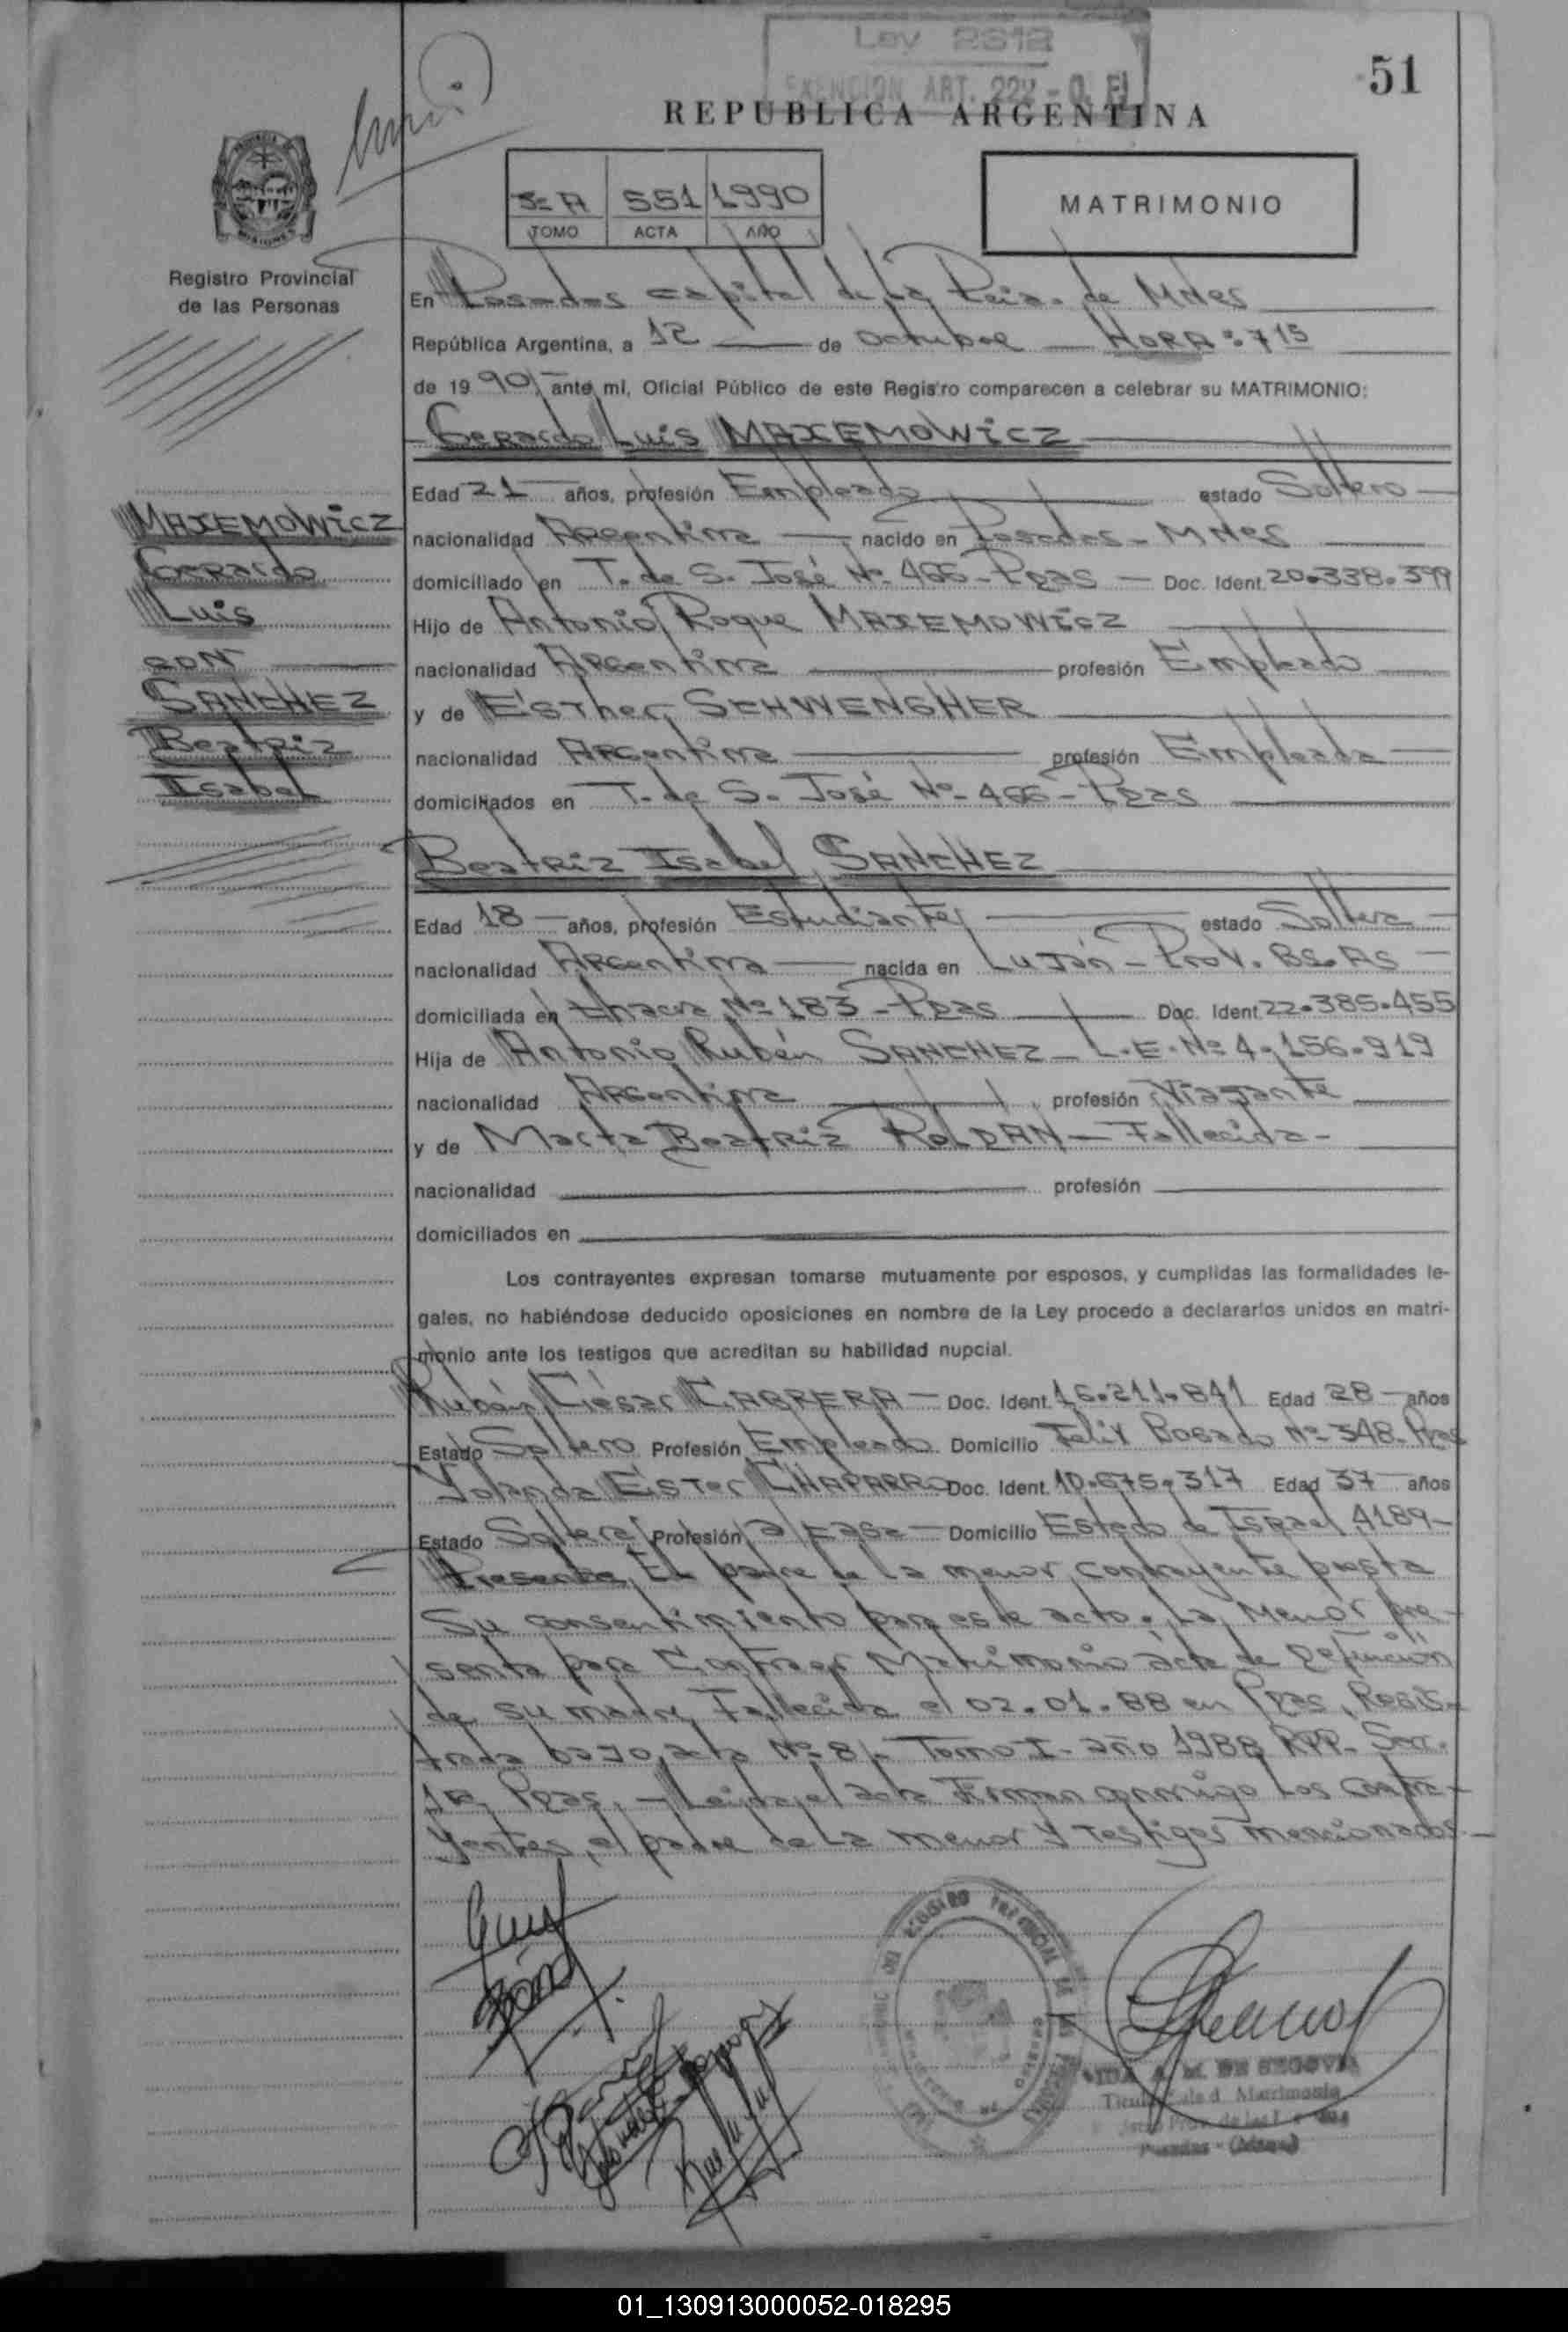 Ley 2312
EXENCION ART. 222 - Q. FI
51
REPUBLICA ARGENTINA
551 1990
TOMO ACTA AÑO
MATRIMONIO
Registro Provincial
de las Personas
En Posadas capital de la Pcia. de Mnes
República Argentina, a 12 de Octubre HORA: 7 15
de 19 90, ante mi, Oficial Público de este Registro comparecen a celebrar su MATRIMONIO:
Gerardo Luis MAXEMOWICZ
Edad 21 años, profesión Empleado estado Soltero
nacionalidad Argentina nacido en Posadas - Mnes
domiciliado en T. de S. José Nº 466 - Pdas Doc. Ident. 20.338.399
Hijo de Antonio Roque MAXEMOWICZ
nacionalidad Argentina profesión Empleado
y de Esther SCHWENGHER
nacionalidad Argentina profesión Empleada
domiciliados en T. de S. José Nº 466 - Pdas
MAXEMOWICZ
Gerardo
Luis
CON
SANCHEZ
Beatriz
Isabel
Beatriz Isabel SANCHEZ
Edad 18 años, profesión Estudiante estado Soltera
nacionalidad Argentina nacida en Luján - Prov. Bs. As
domiciliada en Chacra Nº 183 - Pdas Doc. Ident. 22.385.455
Hija de Antonio Rubén SANCHEZ - L.E. Nº 4.156.919
nacionalidad Argentina profesión Viajante
y de Marta Beatriz ROLDAN - Fallecida -
nacionalidad profesión
domiciliados en
Los contrayentes expresan tomarse mutuamente por esposos, y cumplidas las formalidades le-
gales, no habiéndose deducido oposiciones en nombre de la Ley procedo a declararlos unidos en matri-
monio ante los testigos que acreditan su habilidad nupcial.
Rubén César CABRERA - Doc. Ident. 16.211.841 Edad 28 años
Estado Soltero Profesión Empleado Domicilio Felix Bogado Nº 348 - Pdas
Yolanda Ester CHAPARRO Doc. Ident. 10.675.317 Edad 37 años
Estado Soltera Profesión a/casa Domicilio Estado de Israel 4189 -
Presente, El padre de la menor contrayente presta
su consentimiento para este acto. La Menor pre-
senta para Contraer Matrimonio acta de defunción
de su madre, Fallecida el 02.01.88 en Pdas, Regis-
trada bajo acta Nº 8/- Tomo I - año 1988 RPP. Secc.
1ra Pdas, - Leida el acta Firman conmigo Los Contra-
yentes, el padre de la menor y testigos mencionados.
A. M. DE SEGOVIA
Matrimonio
Posadas - (Mnes)
01_130913000052-018295